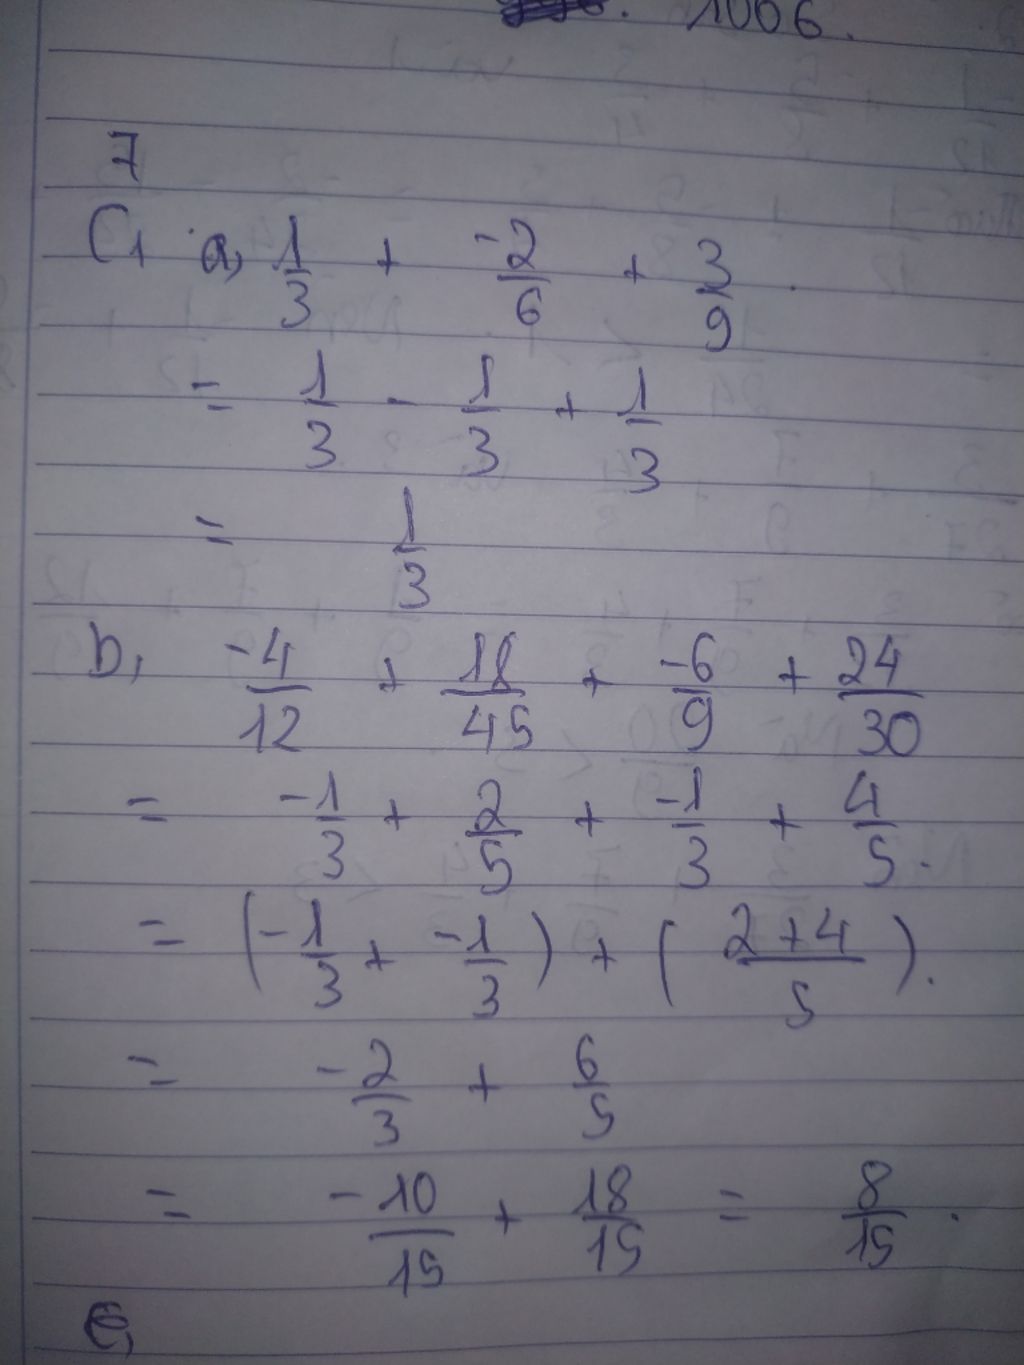 1006.
7
C1 a, 1/3 + -2/6 + 3/9 .
= 1/3 - 1/3 + 1/3
= 1/3
b, -4/12 + 18/45 + -6/9 + 24/30
= -1/3 + 2/5 + -1/3 + 4/5.
= (-1/3 + -1/3) + (2+4/5).
= -2/3 + 6/5
= -10/15 + 18/15 = 8/15 .